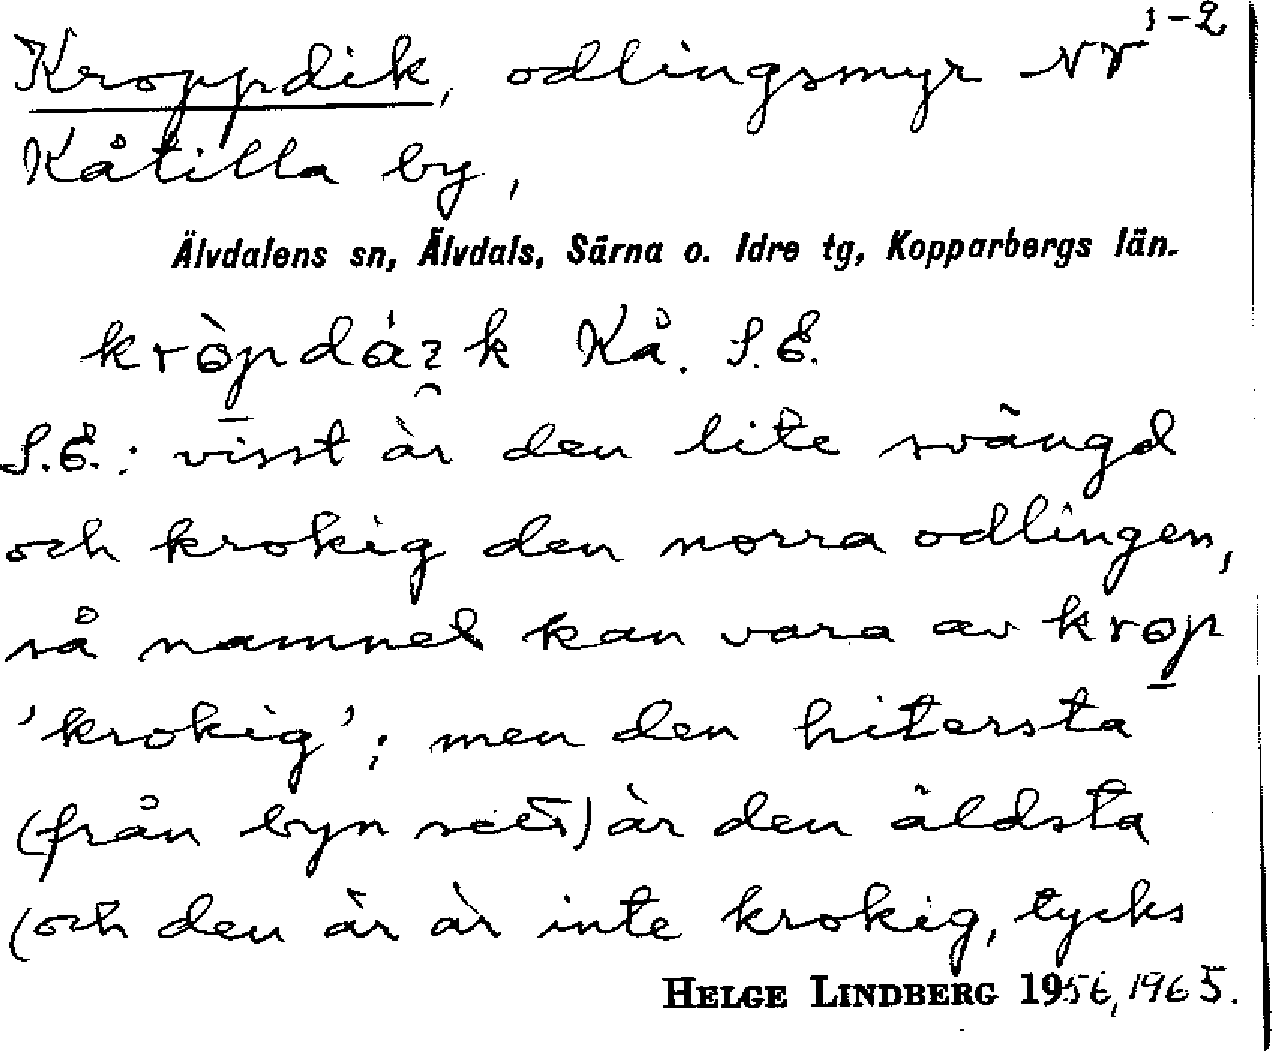 1-2
Kroppdik, odlingsmyr NV
Kåtilla by,
Älvdalens sn, Älvdals, Särna o. Idre tg, Kopparbergs län.
Kå. S.E.
S.E.: visst är den lite svängd
och krokig den norra odlingen,
så namnet kan vara av krop
'krokig'; men den hitersta
(från byn sett) är den äldsta
(och den är inte krokig, tycks
HELGE LINDBERG 1956, 1965.